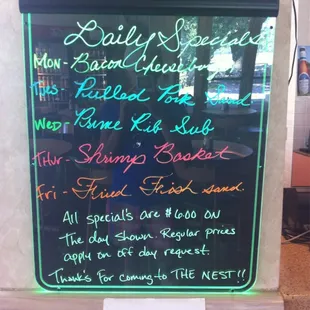 Daily Specials
Mon - Bacon Cheeseburger
Tues - Pulled Pork Sand
Wed - Prime Rib Sub
Thur - Shrimp Basket
Fri - Fried Fish sand.
All special's are $6.00 ON
The day shown. Regular prices
apply on off day request.
Thank's For coming to THE NEST!!